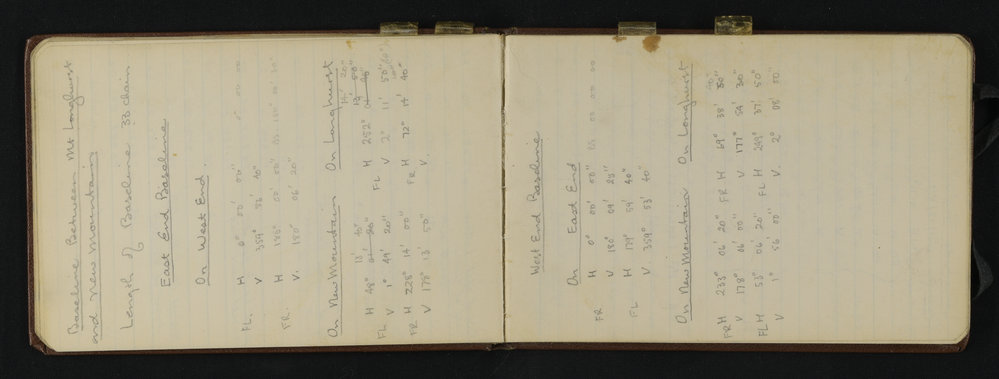 Baseline Between Mt Longhurst
and New Mountain
Length of Baseline 33 chain
East End Baseline
On West End.
FL. H 0° 00' 00"
V 359° 53' 40"
FR. H 180° 00' 00"
V 180° 06' 20"
On New Mountain
FL H 48° 13' 40"
V 1° 49' 20"
FR H 228° 14' 00"
V 178° 13' 50"
On Longhurst
FL H 252°
V 2° 11' 50"
FR H 72° 14' 40"
V.
West End Baseline
On East End
FR H 0° 00' 00"
V 180° 09' 25"
FL H 179° 59' 40"
V. 359° 53' 40"
On New Mountain
FR H 233° 06' 20"
V 178° 06' 00"
FL H 53° 06' 20"
V 1° 56 00"
On Longhurst
FR H 69° 38'
V. 177° 54' 30"
FL H 249° 37' 50"
V. 2° 08' 00"